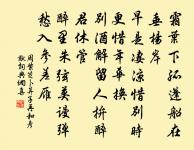 霜葉下孤篷船在
垂楊岸
早是凄涼惜別時
更惜年華換
別酒解留人拚醉
君休管
醉里朱弦莫謾彈
愁入參差雁
周紫芝卜算子再和彥
猷詞典網